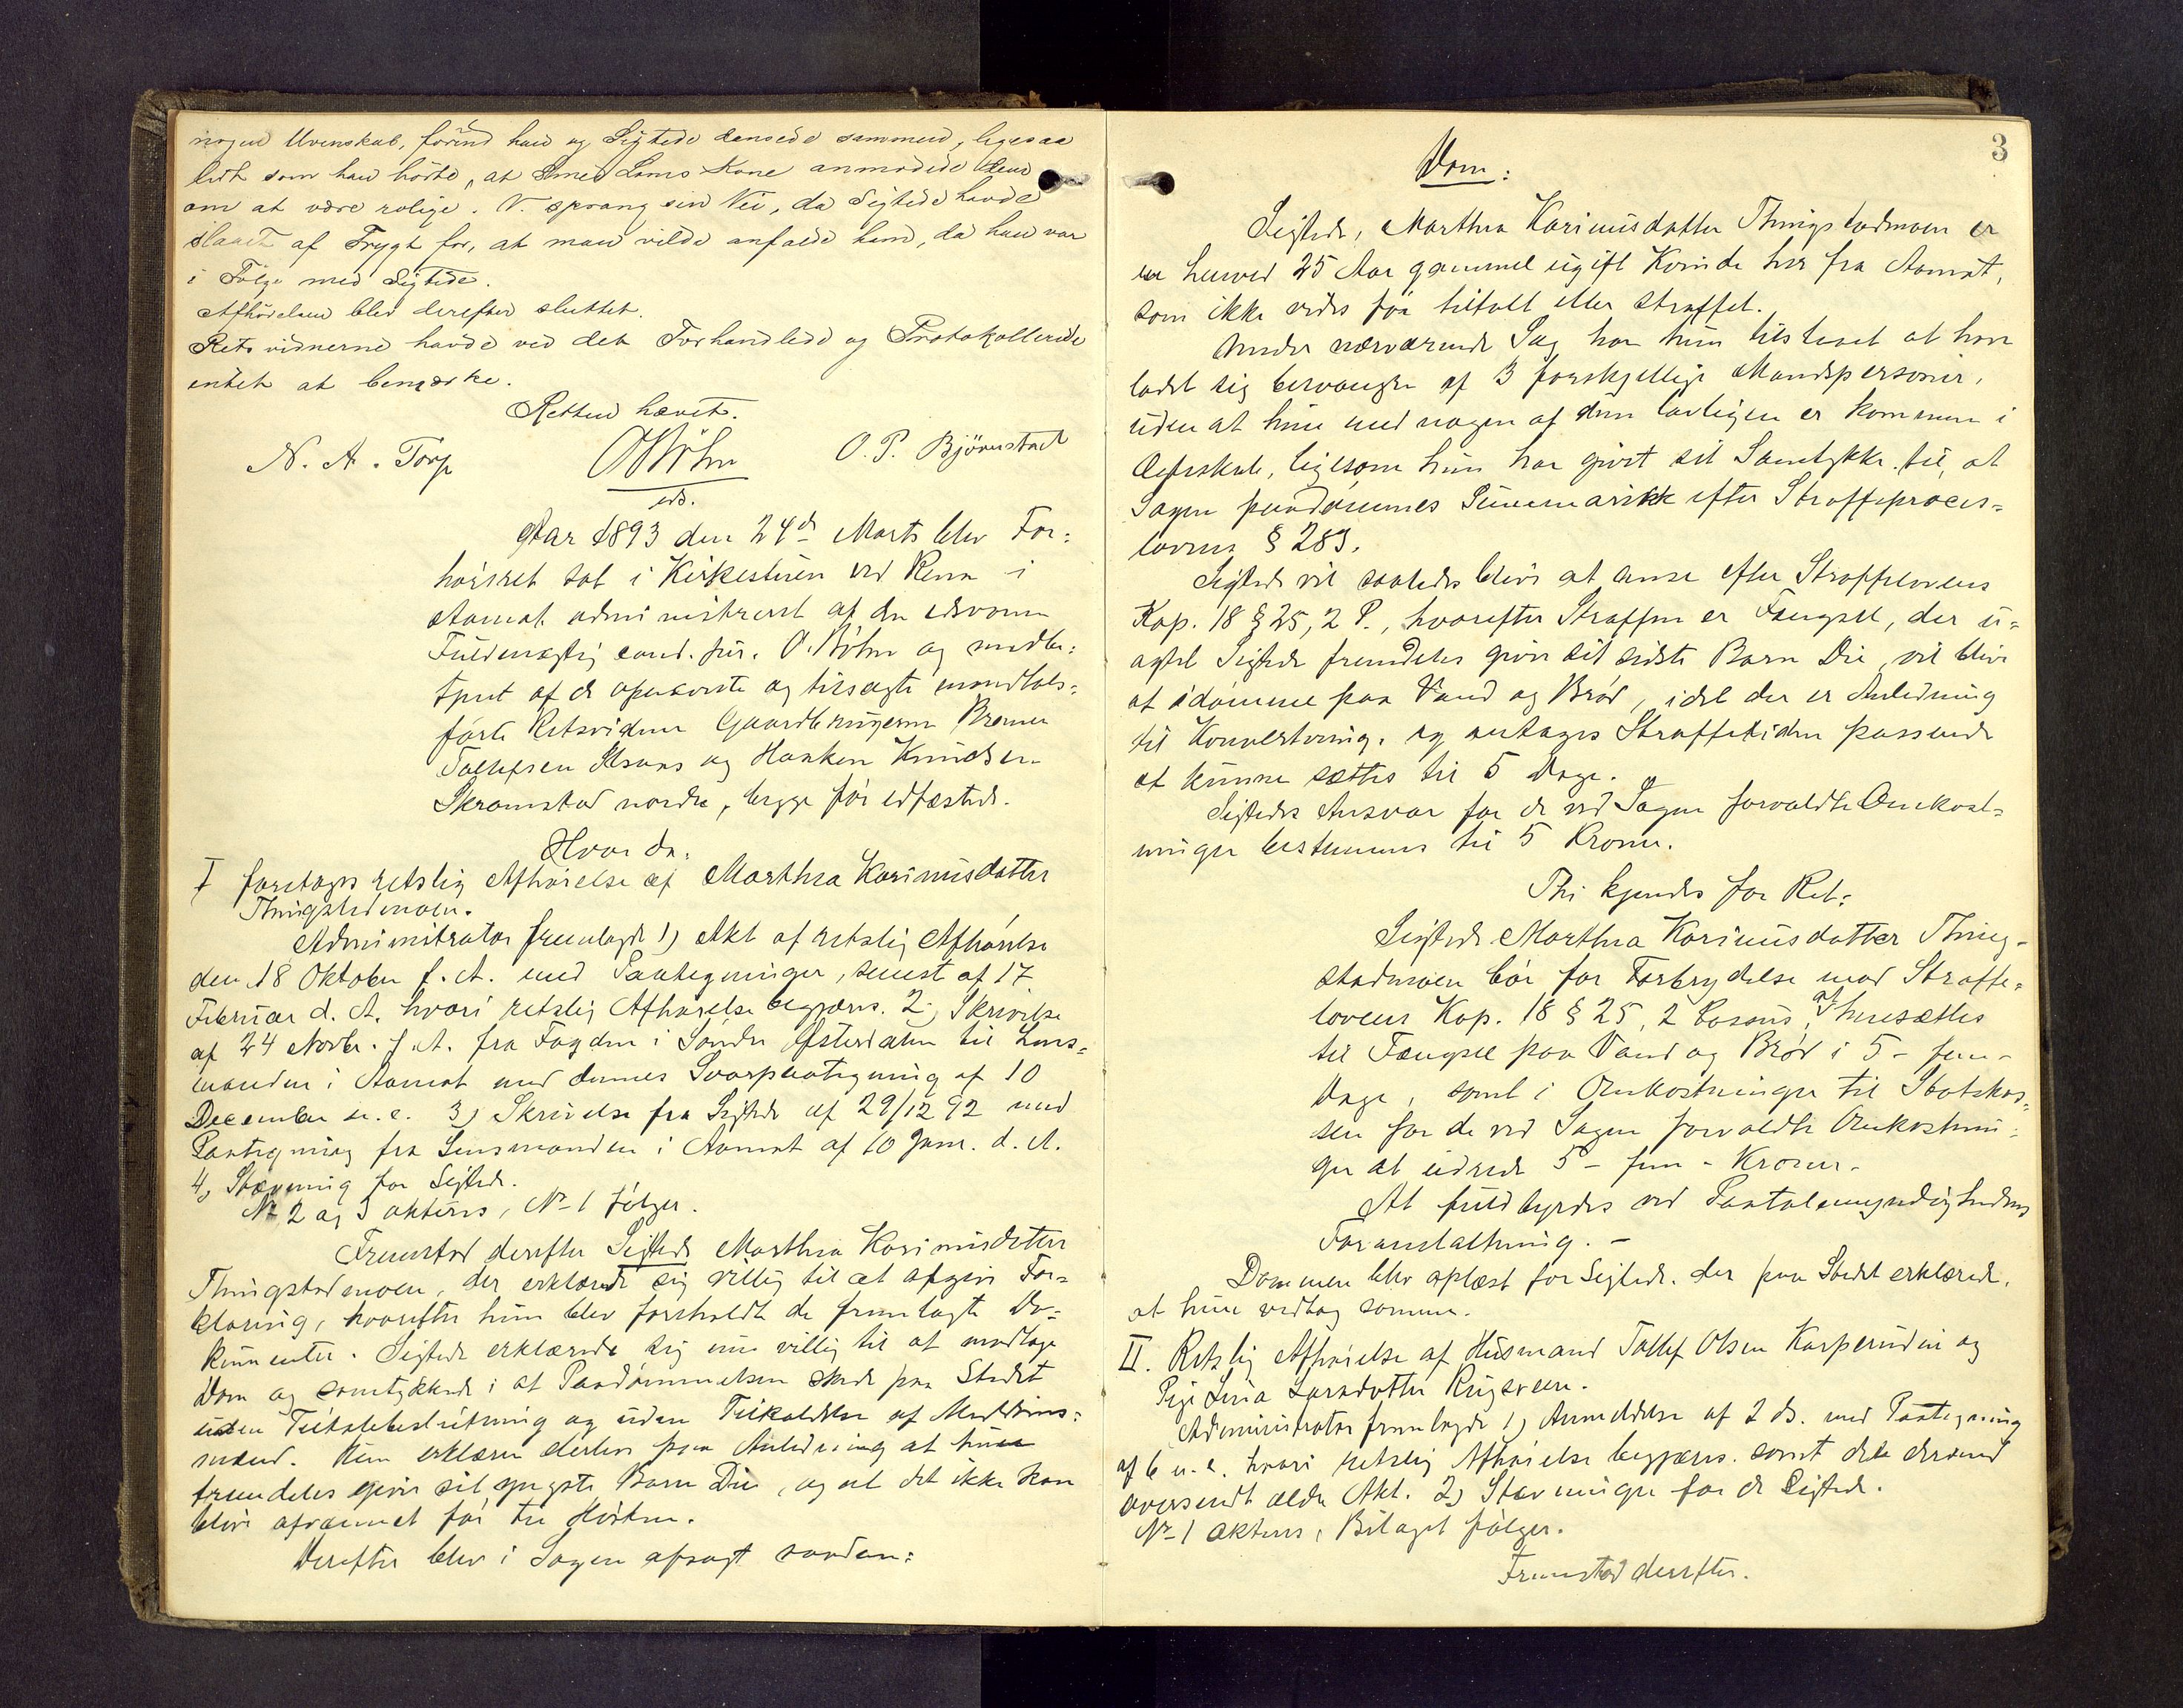 nogen Uvenskab, førend han og Sigtede dansede sammen, ligesaa
lidt som han hørte, at Smed Lams Kone anmodede dem
om at være rolige. V. sprang sin Vei, da Sigtede havde
slaaet af Frygt for, at man vilde anfalde ham, da han var
i Følge med Sigtede.
Afhørelsen blev derefter sluttet.
Retsvidnerne havde ved det Forhandlede og Protokollerede
intet at bemærke.
Retten hævet.
N. A. Torp
O Bøhm
O. P. Bjørnstad
edb.
Aar 1893 den 24de Marts blev For=
hørsret sat i Kirkestuen ved Rena i
Aamot administreret af den edsvorne
Fuldmægtig cand. jur. O. Bøhm og medbe=
tjent af de opnævnte og tilsagte mandtals=
førte Retsvidner Gaardbrugerne Bremer
Tollefsen Ilsaas og Haaken Knudsen
Skramstad nordre, begge før edfæstede.
Hvor da:
I foretoges retslig Afhørelse af Marthea Karinusdatter
Thingstadmoen.
Administrator fremlagde 1) Akt af retslig Afhørelse
den 18 Oktober f. A. med Paategninger, senest af 17
Februar d. A. hvori retslig Afhørelse begjæres. 2) Skrivelse
af 24 Novbr. f. A. fra Fogden i Søndre Østerdalen til Lens=
manden i Aamot med dennes Svarpaategning af 10
December s. A. 3) Skrivelse fra Sigtede af 29/12 92 med
Paategning fra Lensmanden i Aamot af 10 Janr. d. A.
4) Stævning for Sigtede.
No 2 og 3 akteres, No 1 følger.
Fremstod derefter Sigtede Marthea Karinusdatter
Thingstadmoen, der erklærede sig villig til at afgive For=
klaring, hvorefter hun blev foreholdt de fremlagte Do=
kumenter. Sigtede erklærede sig nu villig til at modtage
Dom og samtykkede i at Paadømmelsen skede paa Stedet
uden Tiltalebeslutning og uden Tilkaldelse af Meddoms=
mænd. Hun erklærer derhos paa Anledning at hun
fremdeles giver sit yngste Barn Die, og at det ikke kan
blive afvænnet før til Høsten.
Derefter blev i Sagen afsagt saadan:
3
Dom:
Sigtede, Marthea Karinusdatter Thingstadmoen er
en henved 25 Aar gammel ugift Kvinde her fra Aamot,
som ikke vides før tiltalt eller straffet.
Under nærværende Sag har hun tilstaaet at have
ladet sig besvangre af 3 forskjellige Mandspersoner,
uden at hun med nogen af dem lovligen er kommen i
Ægteskab, ligesom hun har givet sit Samtykke til, at
Sagen paadømmes summarisk efter Straffeproces=
lovens § 283.
Sigtede vil saaledes blive at anse efter Straffelovens
Kap. 18 § 25, 2 P., hvorefter Straffen er Fængsel, der u=
agtet Sigtede fremdeles giver sit sidste Barn Die, vil blive
at idømme paa Vand og Brød, idet der er Anledning
til Konvertering, og antages Straffetiden passende
at kunne sættes til 5 Dage.
Sigtedes Ansvar for de ved Sagen forvoldte Omkost=
ninger bestemmes til 5 Kroner.
Thi kjendes for Ret:
Sigtede Marthea Karinusdatter Thing-
stadmoen bør for Forbrydelse mod Straffe=
lovens Kap. 18 § 25, 2 Passus, at hensættes
til Fængsel paa Vand og Brød i 5 - fem -
Dage, samt i Omkostninger til Statskas=
sen for de ved Sagen forvoldte Omkostnin=
ger at udrede 5 - fem - Kroner.
At fuldbyrdes ved Paatalemyndighedens
Foranstaltning. -
Dommen blev oplæst for Sigtede, der paa Stedet erklærede,
at hun vedtog samme.
II. Retslig Afhørelse af Husmand Tollef Olsen Kasperudeie og
Pige Lina Larsdatter Rugsveen.
Administrator fremlagde 1) Anmeldelse af 2 ds. med Paategning
af 6 s. A. hvori retslig Afhørelse begjæres. samt det derved
oversendt ældre Akt. 2) Stævninger for de Sigtede.
No 1 akteres, Bilaget følger.
Fremstod derefter.